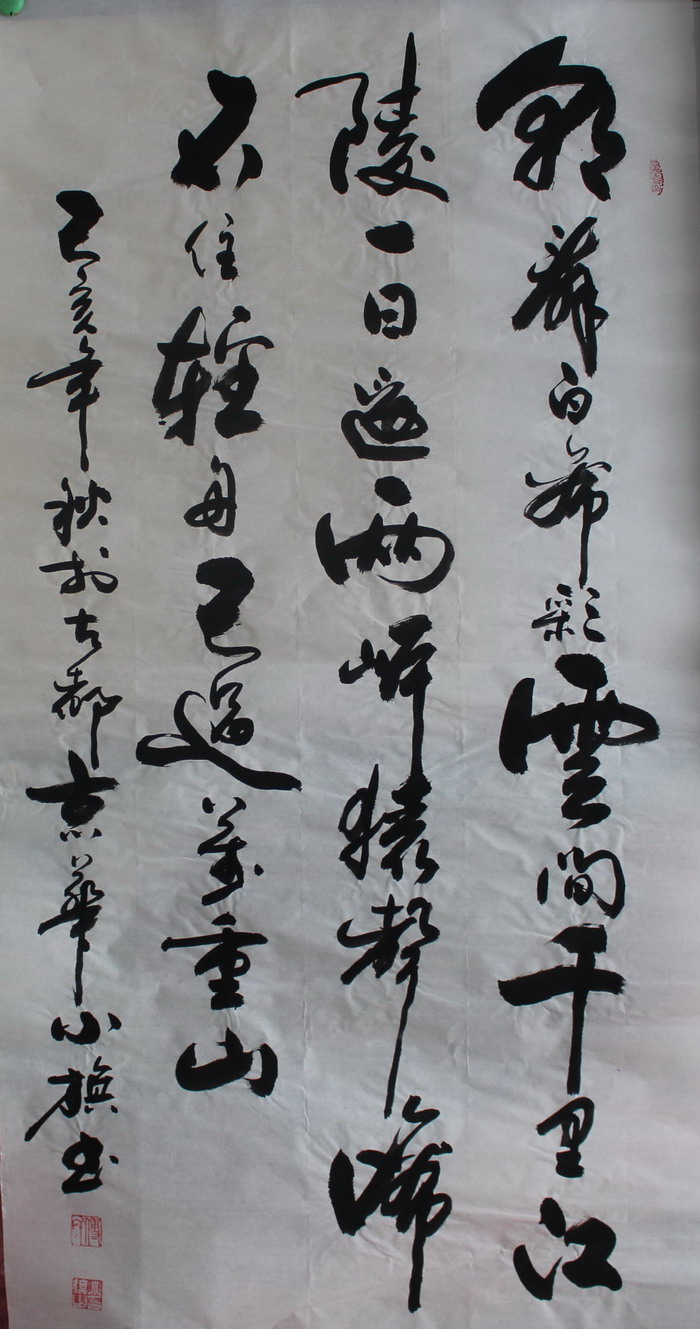 朝辭白帝彩雲間千里江
陵一日還兩岸猿聲啼
不住輕舟已過萬重山
己亥年秋於古都京華小旗书